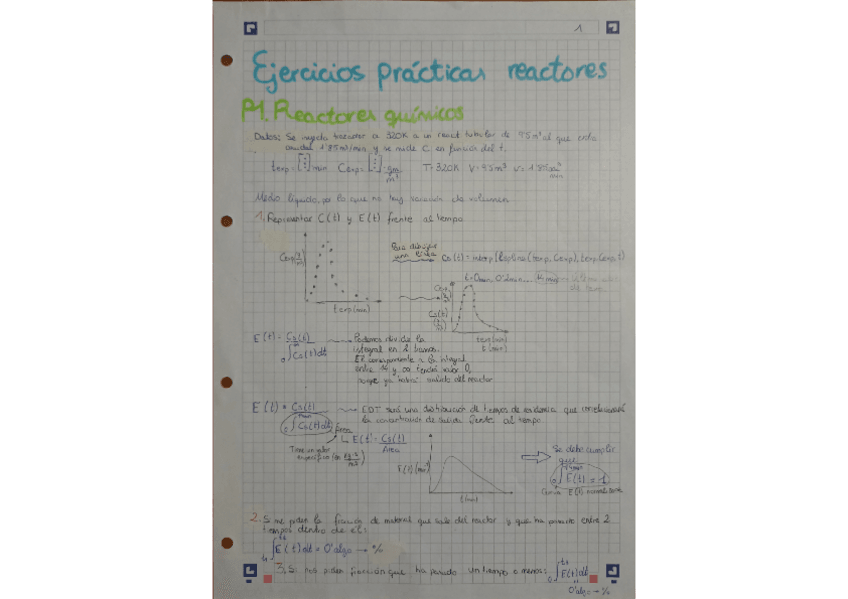 1
Ejercicios prácticas reactores
P1. Reactores químicos
Datos: Se inyecta trazador a 320K a un react. tubular de 95m³ al que entra
caudal 1'85m³/min y se mide C en función del t.
texp = [⋮] min Cexp = [⋮] gm/m³ T=320K V=95m³ v=1'85 m³/min
Medio líquido, por lo que no hay variación de volumen
1. Representar C(t) y E(t) frente al tiempo
Cexp
texp(min)
Para dibujar
una línea
Cs(t) = interp(lspline(texp, Cexp), texp, Cexp, t)
t=0min, 0'2min...
Cexp
Cs(t)
texp(min)
t(min)
E(t) = Cs(t) / ₀∫^∞ Cs(t)dt
Podemos dividir la
integral en 2 tramos.
El correspondiente a la integral
entre 14 y ∞ tendrá valor 0,
porque ya habrá salido del reactor
E(t) = Cs(t) / ₀∫ Cs(t)dt
EDT será una distribución de tiempos de residencia que
la concentración de salida frente al tiempo
Área
E(t) = Cs(t) / Área
Tiene un valor
específico
E(t)
t(min)
Se debe cumplir
que:
₀∫ E(t) = 1
Curva E(t) normalizada
2. Si me piden la fracción de material que sale del reactor y que ha pasado entre 2
tiempos dentro de él:
t₁∫^t₂ E(t)dt = 0'algo → %
3. Si nos piden fracción que ha pasado un tiempo o menos: ₀∫ E(t)dt
0'algo → %